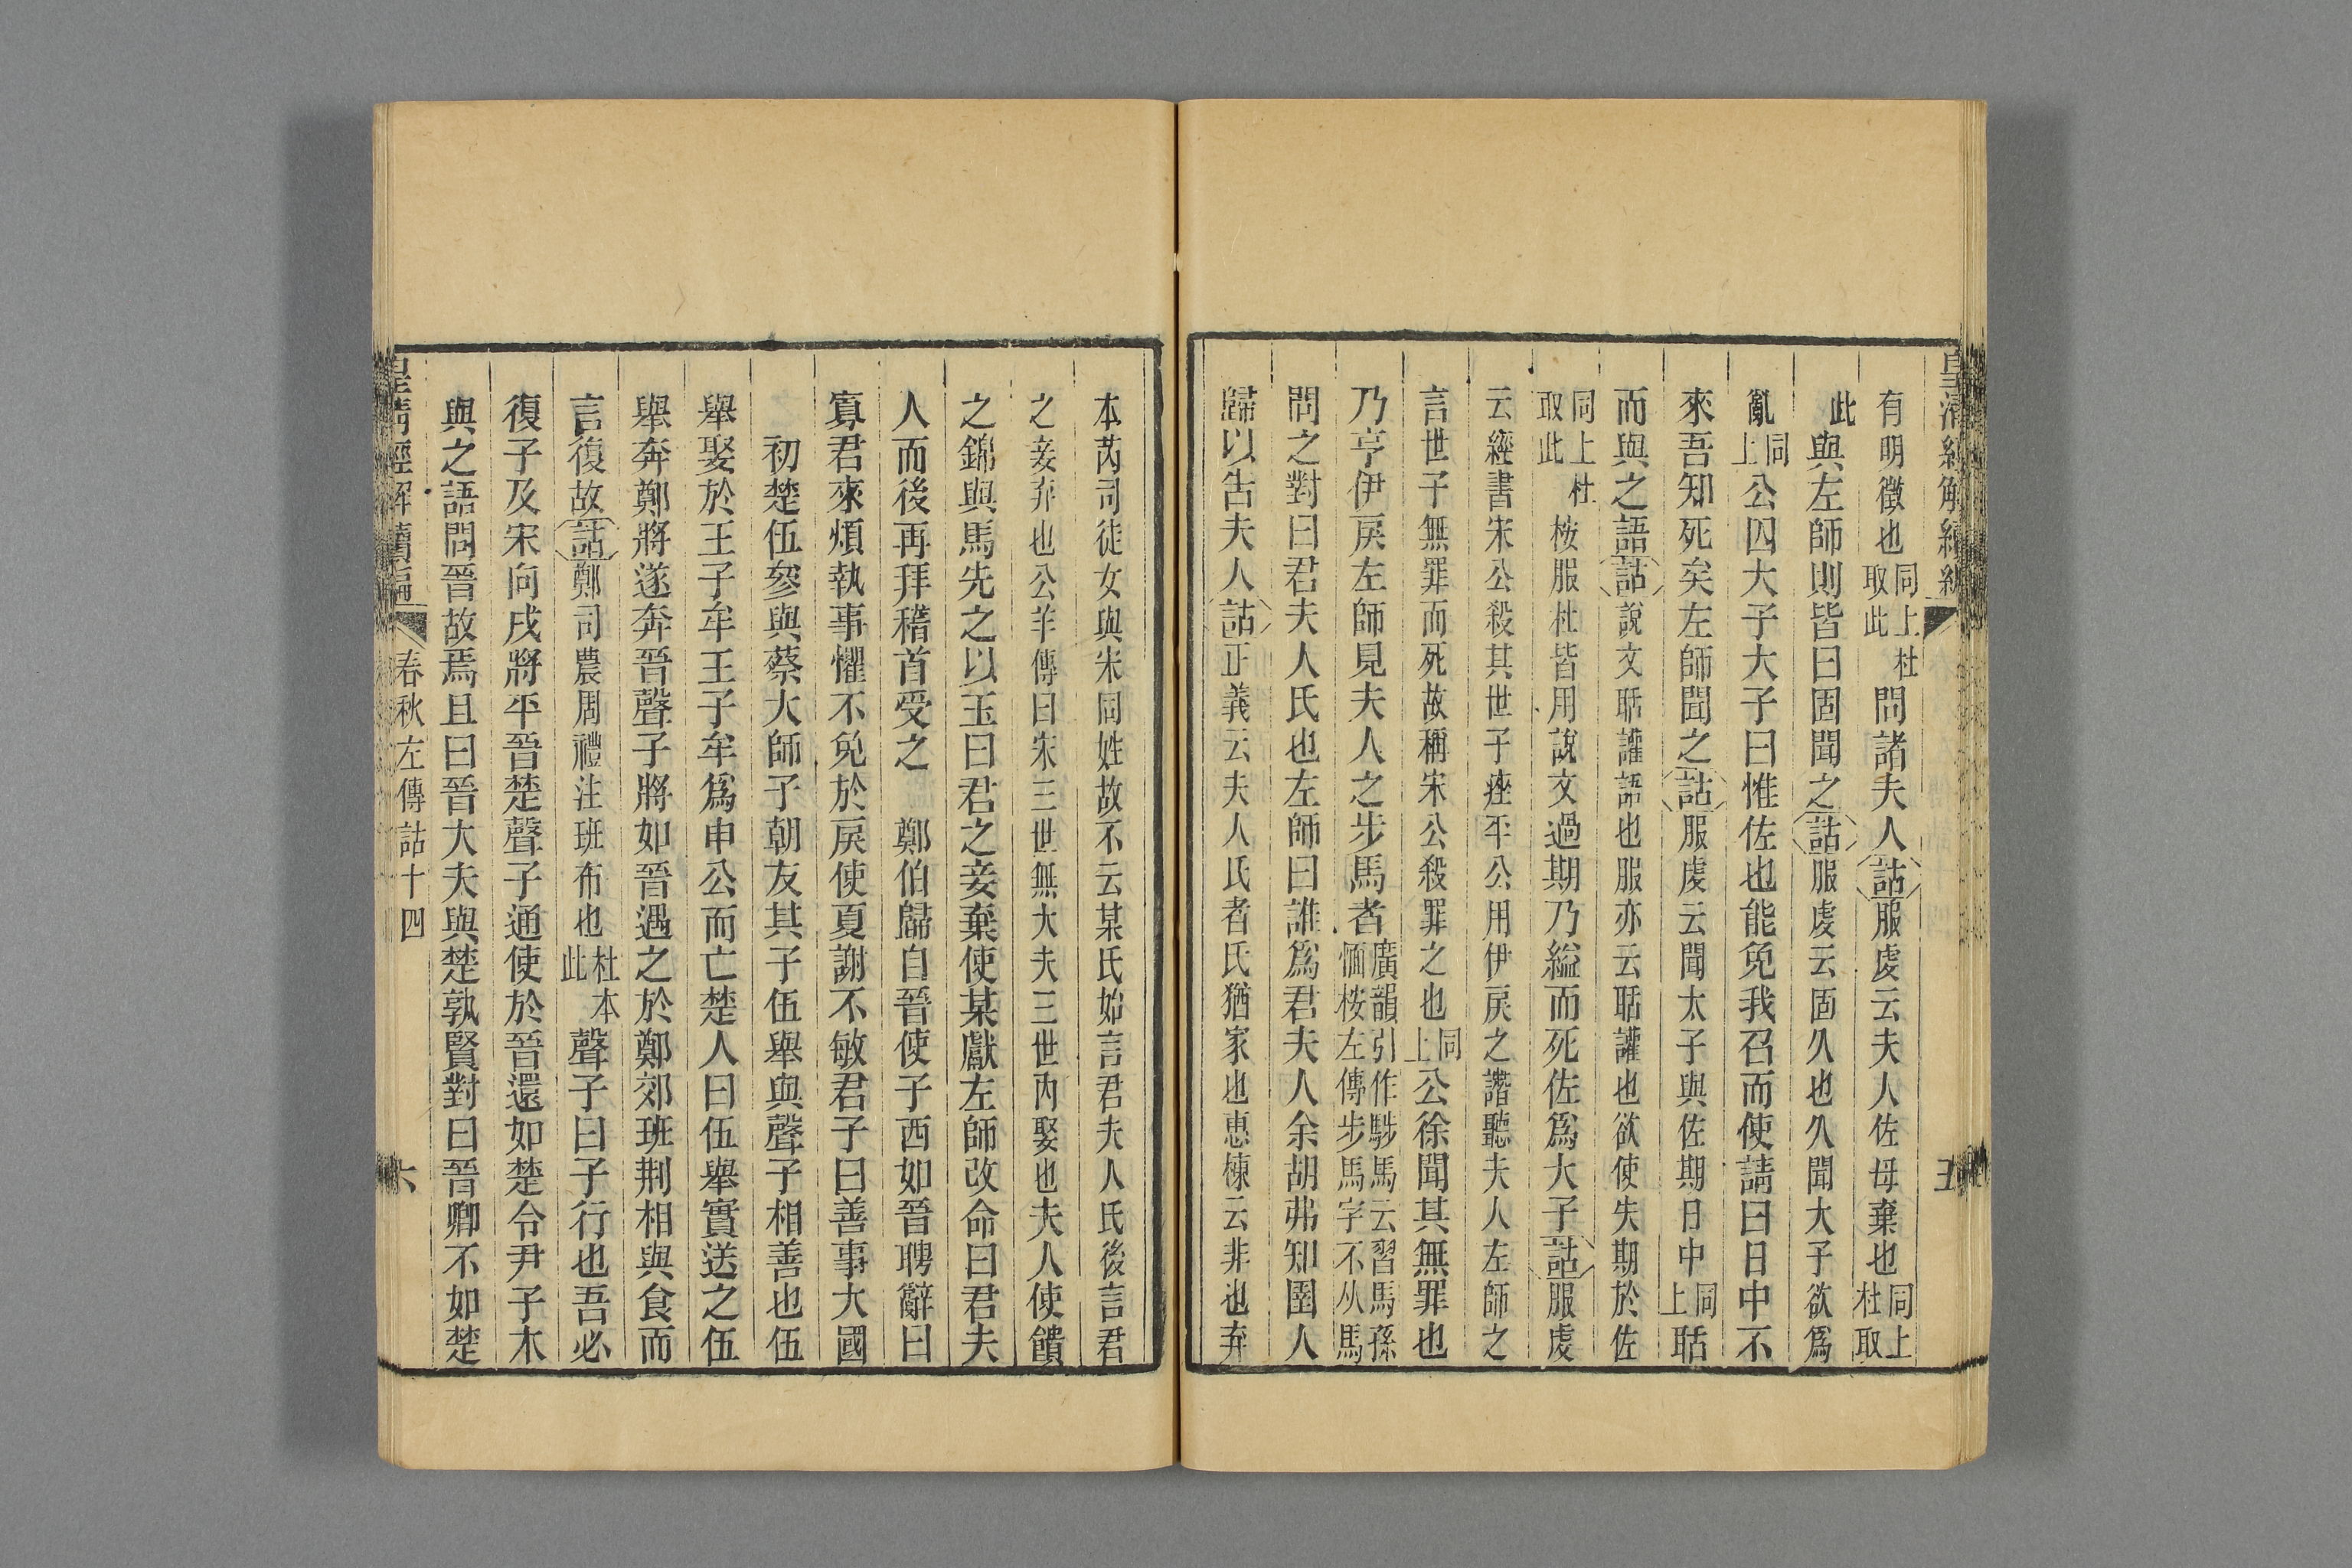 皇清經解續編
五
有明徵也同上杜取此問諸夫人詁服虔云夫人佐母棄也同上杜取
此與左師則皆曰固聞之詁服虔云固久也久聞大子欲爲
亂同上公囚大子大子曰惟佐也能免我召而使請曰日中不
來吾知死矣左師聞之詁服虔云聞太子與佐期日中同上聒
而與之語詁說文聒讙語也服亦云聒讙也欲使失期於佐
同上杜取此桉服杜皆用說文過期乃縊而死佐爲大子詁服虔
云經書宋公殺其世子痤平公用伊戾之譖聽夫人左師之
言世子無罪而死故稱宋公殺罪之也同上公徐聞其無罪也
乃亨伊戾左師見夫人之步馬者廣韻引作䮛馬云習馬孫愐桉左傳步馬字不从馬
問之對曰君夫人氏也左師曰誰爲君夫人余胡弗知圉人
歸以告夫人詁正義云夫人氏者氏猶家也惠棟云非也弃
本芮司徒女與宋同姓故不云某氏始言君夫人氏後言君
之妾弃也公羊傳曰宋三世無大夫三世內娶也夫人使饋
之錦與馬先之以玉曰君之妾棄使某獻左師改命曰君夫
人而後再拜稽首受之　鄭伯歸自晉使子西如晉聘辭曰
寡君來煩執事懼不免於戾使夏謝不敏君子曰善事大國
初楚伍參與蔡大師子朝友其子伍舉與聲子相善也伍
舉娶於王子牟王子牟爲申公而亡楚人曰伍舉實送之伍
舉奔鄭將遂奔晉聲子將如晉遇之於鄭郊班荆相與食而
言復故詁鄭司農周禮注班布也杜本此聲子曰子行也吾必
復子及宋向戌將平晉楚聲子通使於晉還如楚令尹子木
與之語問晉故焉且曰晉大夫與楚孰賢對曰晉卿不如楚
皇清經解續編
春秋左傳詁十四
六